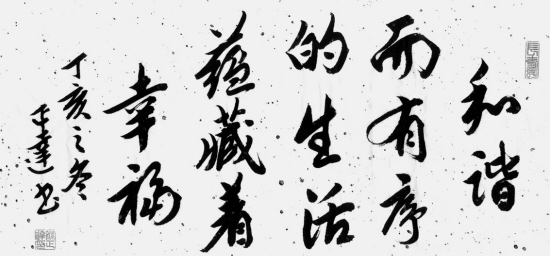 和谐
而有序
的生活
蕴藏着
幸福
丁亥之冬
達书